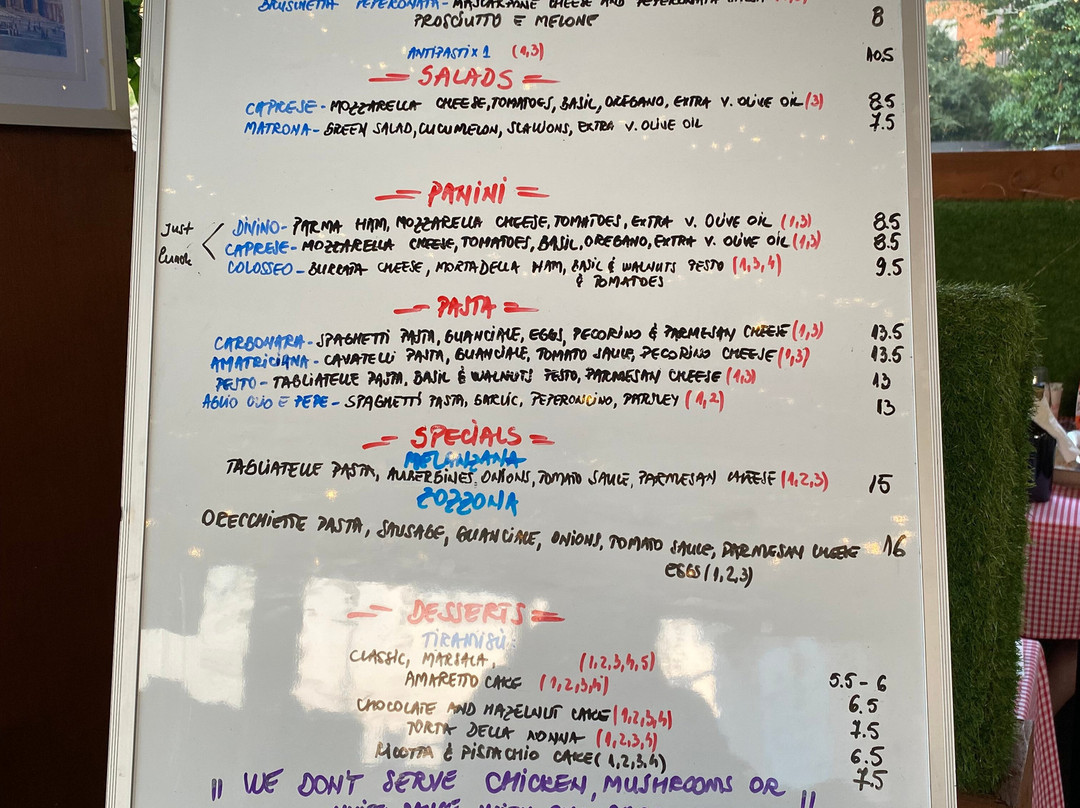 BRUSCHETTA PEPERONATA - MASCARPONE CHEESE AND PEPERONATA
PROSCIUTTO E MELONE 8
ANTIPASTI x 1 (1,3) 10.5
SALADS
CAPRESE - MOZZARELLA CHEESE, TOMATOES, BASIL, OREGANO, EXTRA V. OLIVE OIL (3) 8.5
MATRONA - GREEN SALAD, CUCUMELON, SCALLIONS, EXTRA V. OLIVE OIL 7.5
PANINI
Just Lunch
DIVINO - PARMA HAM, MOZZARELLA CHEESE, TOMATOES, EXTRA V. OLIVE OIL (1,3) 8.5
CAPRESE - MOZZARELLA CHEESE, TOMATOES, BASIL, OREGANO, EXTRA V. OLIVE OIL (1,3) 8.5
COLOSSEO - BURRATA CHEESE, MORTADELLA HAM, BASIL & WALNUTS PESTO (1,3,4) 9.5
& TOMATOES
PASTA
CARBONARA - SPAGHETTI PASTA, GUANCIALE, EGGS, PECORINO & PARMESAN CHEESE (1,3) 13.5
AMATRICIANA - CAVATELLI PASTA, GUANCIALE, TOMATO SAUCE, PECORINO CHEESE (1,3) 13.5
PESTO - TAGLIATELLE PASTA, BASIL & WALNUTS PESTO, PARMESAN CHEESE (1,3) 13
AGLIO OLIO E PEPE - SPAGHETTI PASTA, GARLIC, PEPERONCINO, PARSLEY (1,2) 13
SPECIALS
MELANZANA
TAGLIATELLE PASTA, AUBERGINES, ONIONS, TOMATO SAUCE, PARMESAN CHEESE (1,2,3) 15
ZOZZONA
ORECCHIETTE PASTA, SAUSAGE, GUANCIALE, ONIONS, TOMATO SAUCE, PARMESAN CHEESE 16
EGGS (1,2,3)
DESSERTS
TIRAMISÙ:
CLASSIC, MARSALA, (1,2,3,4,5)
AMARETTO CAKE (1,2,3,4) 5.5 - 6
CHOCOLATE AND HAZELNUT CAKE (1,2,3,4) 6.5
TORTA DELLA NONNA (1,2,3,4) 7.5
RICOTTA & PISTACHIO CAKE (1,2,3,4) 6.5
7.5
!! WE DON'T SERVE CHICKEN, MUSHROOMS OR !!